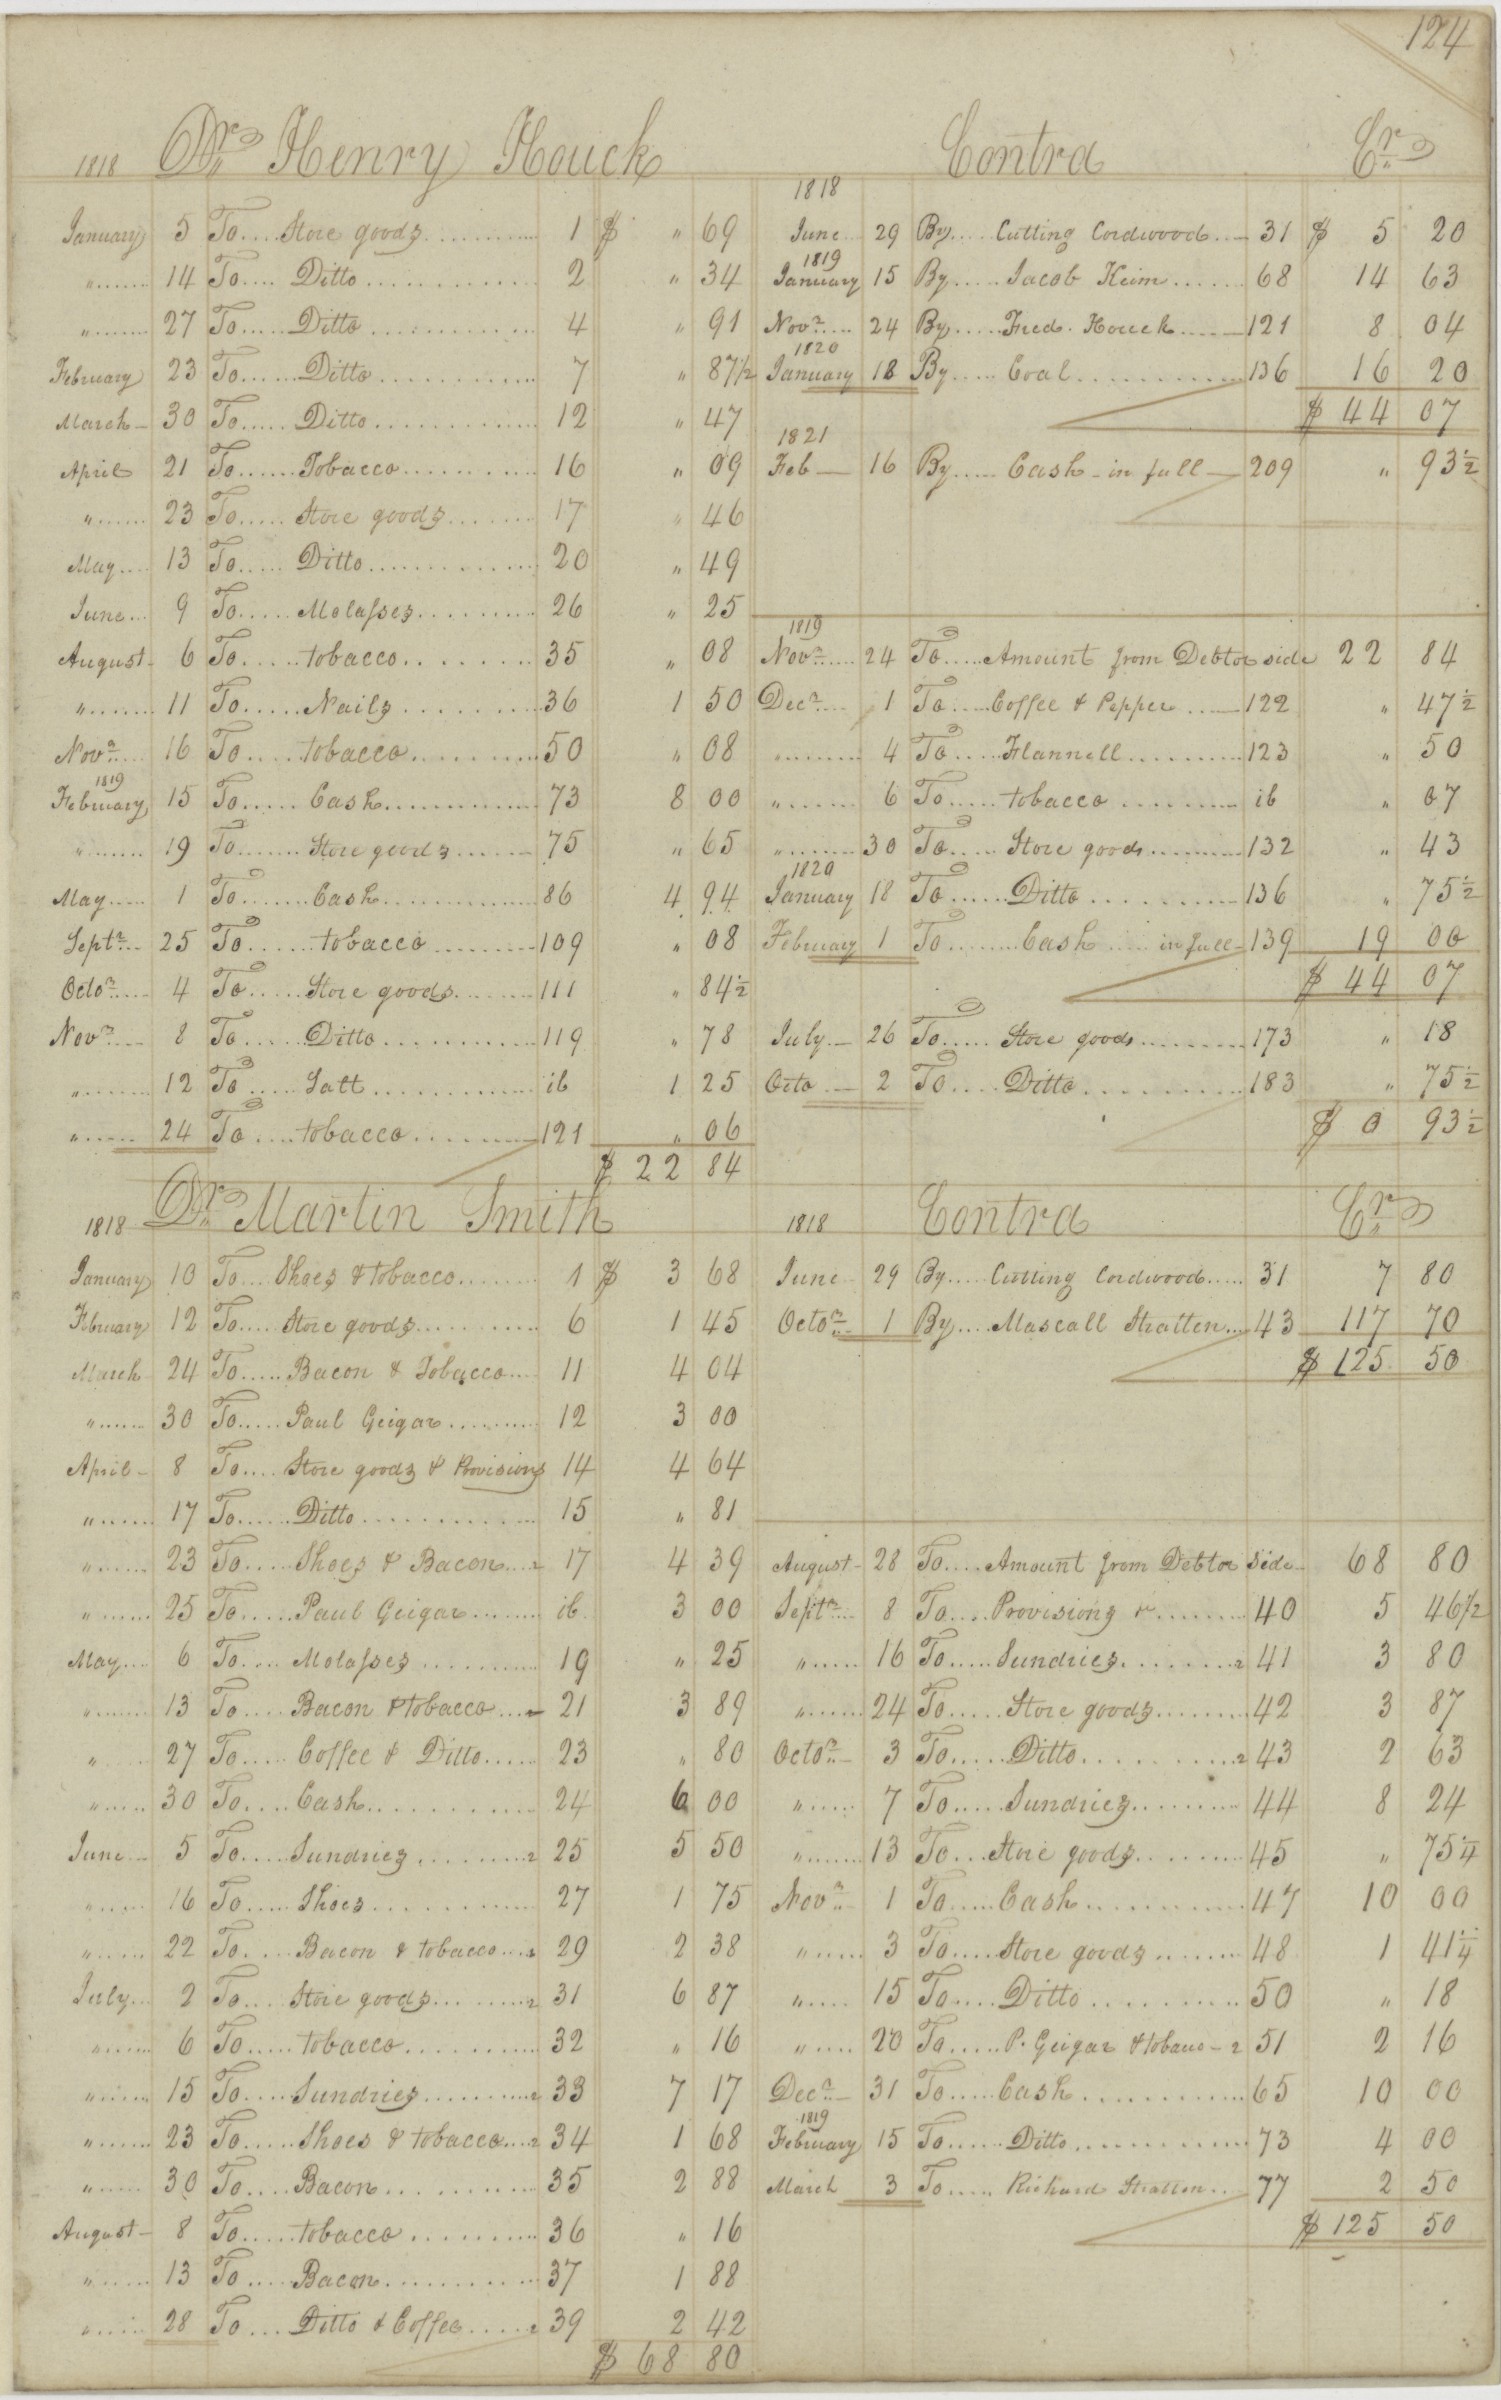 124
1818 Dr. Henry Houck
January 5 To.... Store goods........... 1 $ " 69
"....... 14 To.... Ditto............. 2 " 34
"....... 27 To..... Ditto............. 4 " 91
February 23 To...... Ditto............ 7 " 87 1/2
March 30 To..... Ditto............. 12 " 47
April 21 To...... Tobacco........... 16 " 09
"...... 23 To..... Store goods........ 17 " 46
May.... 13 To..... Ditto............. 20 " 49
June... 9 To..... Molasses......... 26 " 25
August 6 To..... tobacco......... 35 " 08
"....... 11 To..... Nails.......... 36 1 50
Novr.... 16 To..... tobacco.......... 50 " 08
1819
February 15 To..... Cash............. 73 8 00
"....... 19 To....... Store goods....... 75 " 65
May..... 1 To....... Cash............. 86 4 94
Septr... 25 To...... tobacco......... 109 " 08
Octor.... 4 To..... Store goods........ 111 " 84 1/2
Novr.... 8 To..... Ditto............ 119 " 78
"........ 12 To..... Salt............. ib 1 25
"...... 24 To.... tobacco.......... 121 " 06
$ 22 84
Contra Cr.
1818
June 29 By..... Cutting Cordwood... 31 $ 5 20
1819
January 15 By..... Jacob Keim...... 68 14 63
Novr.... 24 By..... Fred. Houck...... 121 8 04
1820
January 18 By..... Coal............ 136 16 20
$ 44 07
1821
Feb 16 By..... Cash in full 209 " 93 1/2
1819
Novr..... 24 To..... Amount from Debtor side 22 84
Decr.... 1 To.... Coffee & Pepper..... 122 " 47 1/2
"......... 4 To..... Flannell.......... 123 " 50
"....... 6 To..... tobacco.......... ib " 07
"........ 30 To..... Store goods.......... 132 " 43
1820
January 18 To...... Ditto........... 136 " 75 1/2
February 1 To........ Cash..... in full 139 19 00
$ 44 07
July 26 To..... Store goods.......... 173 " 18
Octo 2 To.... Ditto............ 183 " 75 1/2
$ 0 93 1/2
1818 Dr. Martin Smith
January 10 To.... Shoes & tobacco........ 1 $ 3 68
February 12 To.... Store goods.......... 6 1 45
March 24 To..... Bacon & Tobacco.... 11 4 04
"...... 30 To..... Paul Geigar.......... 12 3 00
April 8 To.... Store goods & Provisions 14 4 64
"...... 17 To...... Ditto............ 15 " 81
"...... 23 To..... Shoes & Bacon.... 17 4 39
"...... 25 To..... Paul Geigar....... ib 3 00
May.... 6 To.... Molasses.......... 19 " 25
"....... 13 To.... Bacon & tobacco.... 21 3 89
".... 27 To..... Coffee & Ditto..... 23 " 80
"..... 30 To.... Cash............ 24 6 00
June... 5 To..... Sundries.......... 25 5 50
"..... 16 To..... Shoes............ 27 1 75
"..... 22 To.... Bacon & tobacco.... 29 2 38
July... 2 To.... Store goods......... 31 6 87
"...... 6 To..... tobacco........... 32 " 16
"...... 15 To.... Sundries......... 33 7 17
"...... 23 To..... Shoes & tobacco.... 34 1 68
"...... 30 To.... Bacon........... 35 2 88
August 8 To..... tobacco.......... 36 " 16
"..... 13 To..... Bacon............ 37 1 88
"..... 28 To... Ditto & Coffee...... 39 2 42
$ 68 80
1818 Contra Cr.
June 29 By..... Cutting Cordwood..... 31 7 80
Octor... 1 By.... Mascall Stratten... 43 117 70
$ 125 50
August 28 To.... Amount from Debtor Side 68 80
Septr... 8 To.... Provisions &........ 40 5 46 1/2
"...... 16 To..... Sundries......... 41 3 80
"...... 24 To..... Store goods........ 42 3 87
Octor 3 To..... Ditto........... 43 2 63
"..... 7 To..... Sundries......... 44 8 24
"....... 13 To... Store goods........ 45 " 75 1/4
Novr.. 1 To..... Cash............ 47 10 00
"..... 3 To..... Store goods....... 48 1 41 1/4
"..... 15 To..... Ditto......... 50 " 18
"..... 20 To..... P. Geigar & tobacco 51 2 16
Decr.. 31 To..... Cash............ 65 10 00
1819
February 15 To...... Ditto............ 73 4 00
March 3 To..... Richard Stratten... 77 2 50
$ 125 50